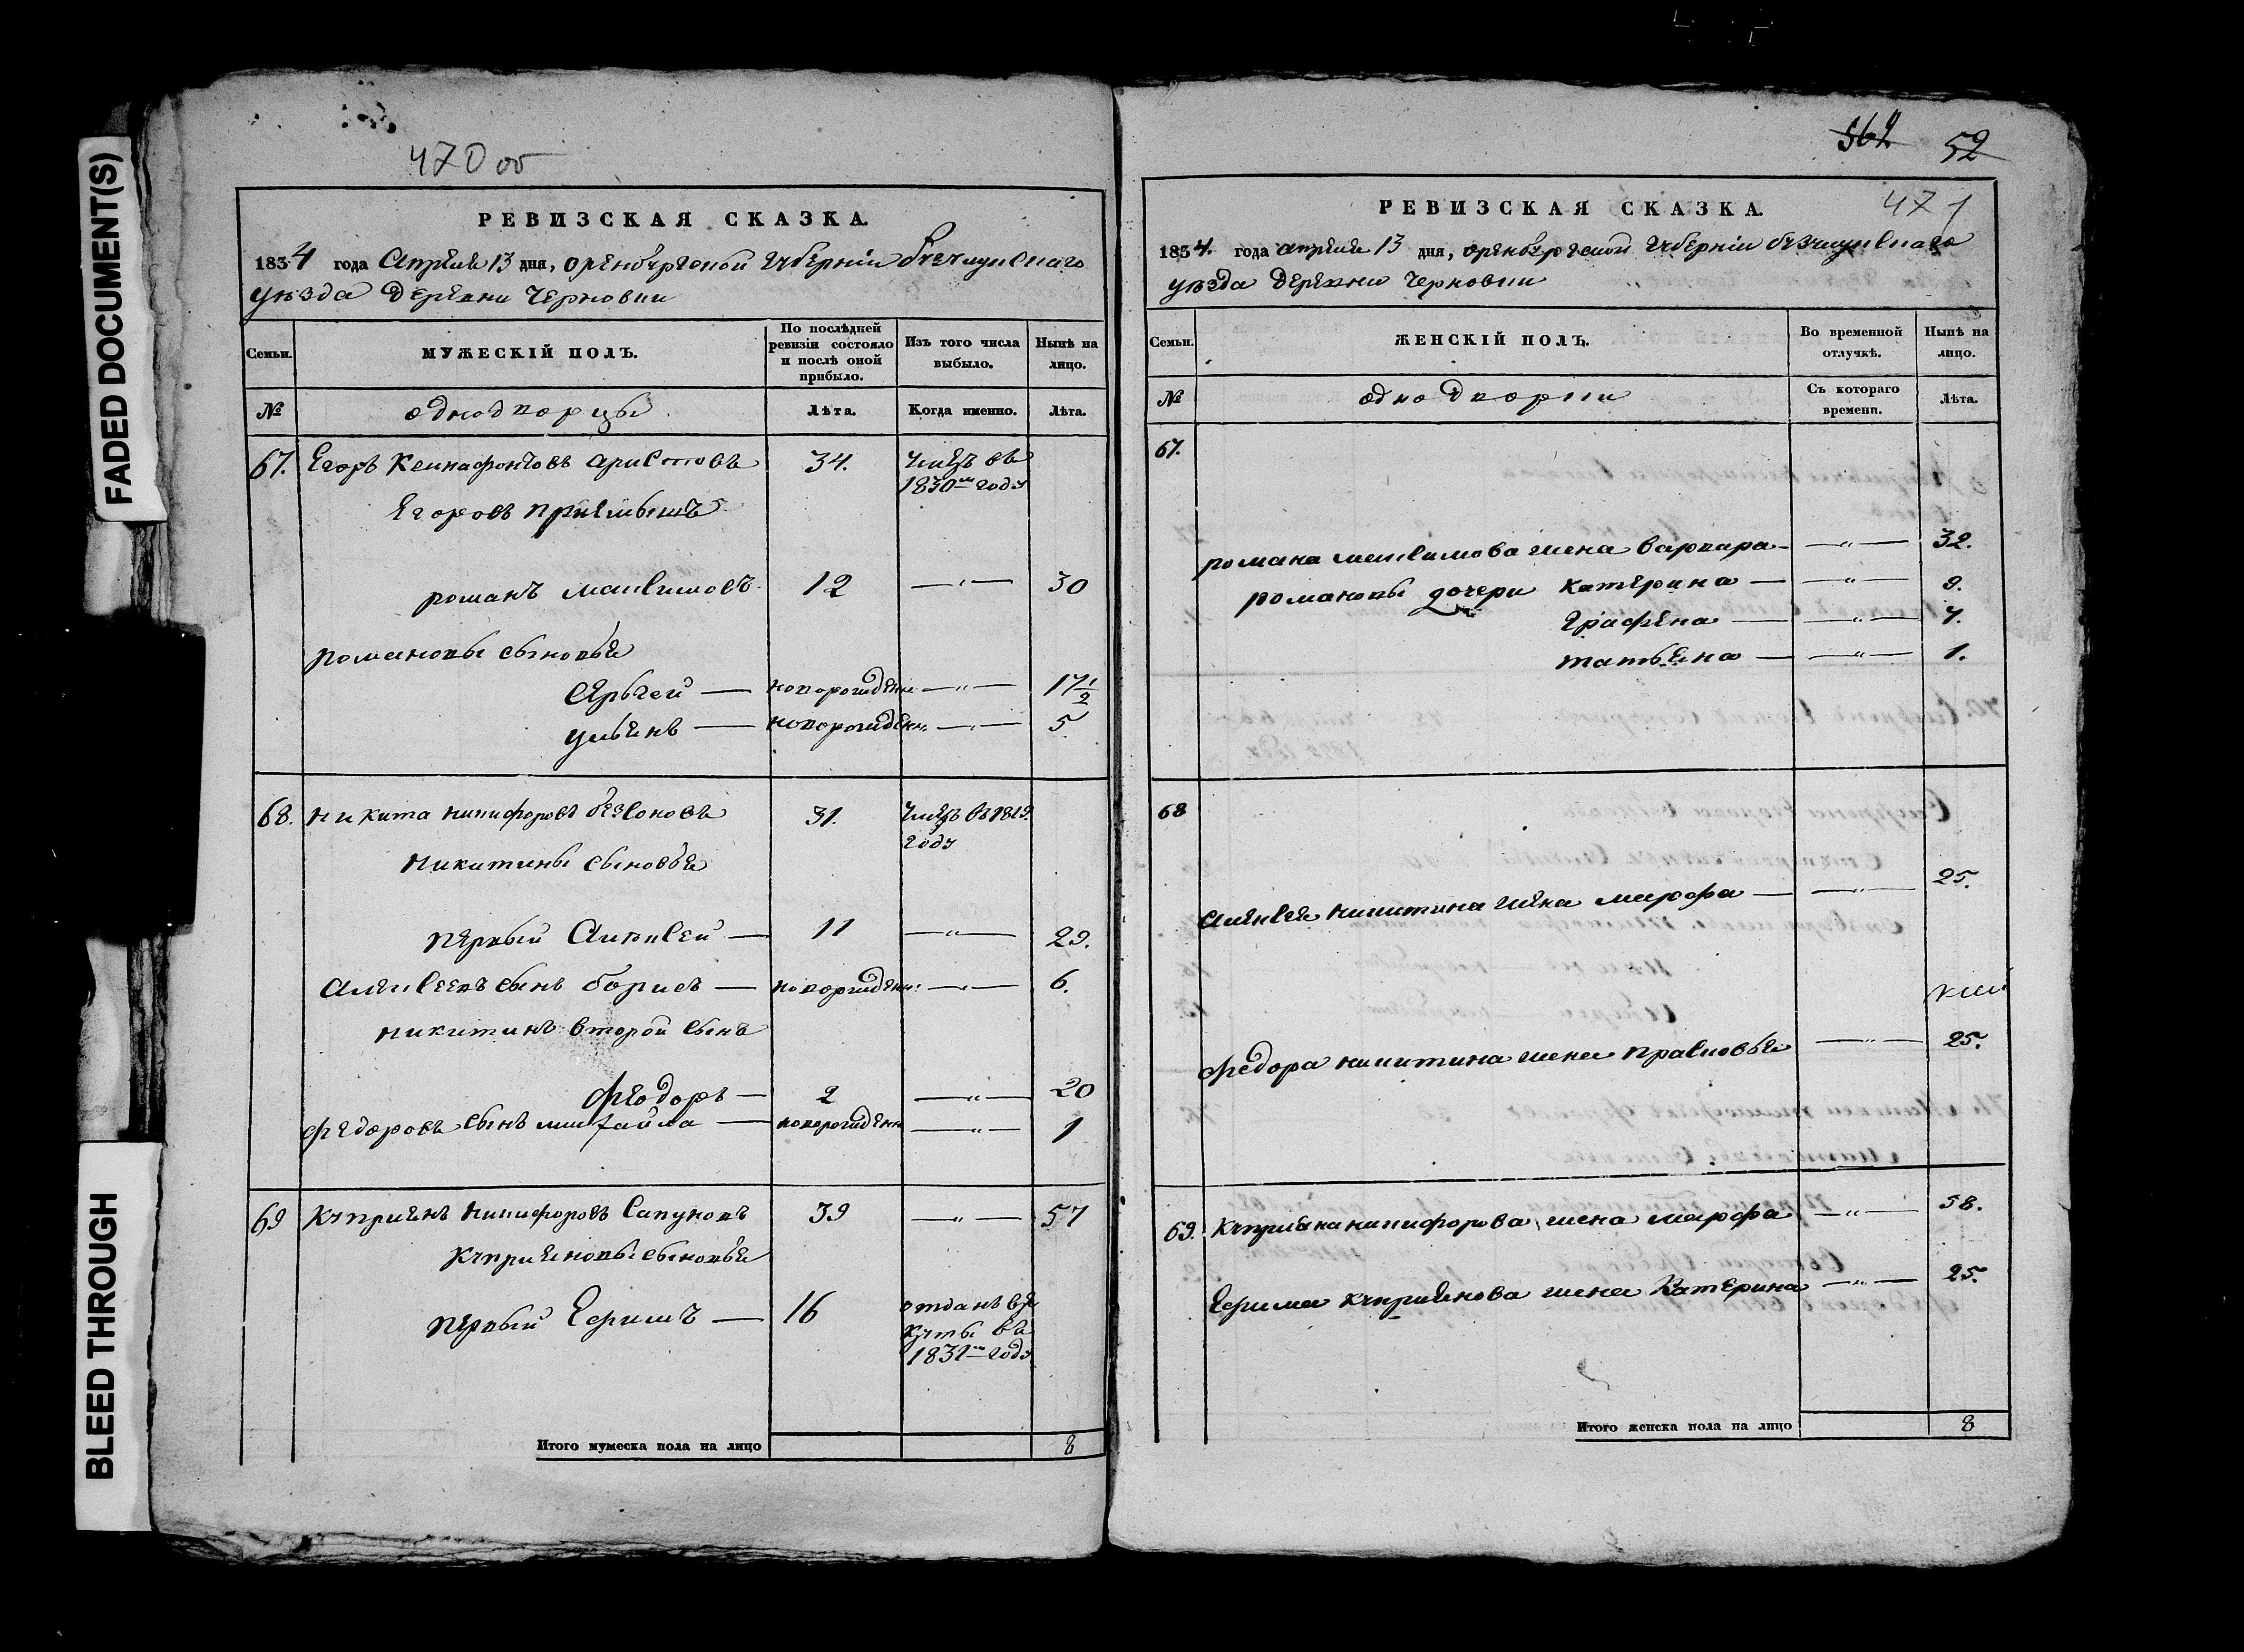 FADED DOCUMENT(S)
BLEED THROUGH
470 об
РЕВИЗСКАЯ СКАЗКА.
1834 года Апреля 13 дня, оренбургской губернiи бугульминскаго
уѣзда деревни Черновки
Семьи.
МУЖЕСКІЙ ПОЛЪ.
По послѣдней ревизіи состояло и послѣ оной прибыло.
Изъ того числа выбыло.
Нынѣ на лицо.
№
однодворцы
Лѣта.
Когда именно.
Лѣта.
67. Егоръ Ксинафонтовъ аристовъ 34. умеръ въ
1830мъ году
Егоровъ приемышъ
романъ максимовъ 12 —"— 30
романовы сыновья
Сергей — новорожденн —"— 17 1/2
ульянъ — новорожденн. —"— 5
68. никита никифоровъ безсоновъ 31. умеръ въ 1819.
году
никитины сыновья
первый Алексей — 11 —"— 29.
Алексеевъ сынъ борисъ — новорожденн: —"— 6.
никитинъ второй сынъ
федоръ — 2 —"— 20
федоровъ сынъ михайла — новорожденн —"— 1
69 Куприянъ никифоровъ Сапуновъ 39 —"— 57
Куприяновы сыновья
первый Ефимъ — 16 отданъ в ре
круты въ
1831мъ году
Итого мужеска пола на лицо 8
52
471
РЕВИЗСКАЯ СКАЗКА.
1834. года апреля 13 дня, оренбургской губернiи бугульминскаго
уѣзда деревни Черновки
Семьи.
ЖЕНСКІЙ ПОЛЪ.
Во временной отлучкѣ.
Нынѣ на лицо.
№
однодворки
Съ котораго времени.
Лѣта.
67.
романа максимова жена варвара — —"— 32.
романовы дочери катерина — —"— 9.
аграфена — —"— 7.
татьяна — —"— 1.
68
Алексея никитина жена марфа — —"— 25.
федора никитина жена прасковья —"— 25.
69. Куприяна никифорова жена марфа —"— 58.
Ефима куприянова жена Катерина —"— 25.
Итого женска пола на лицо 8